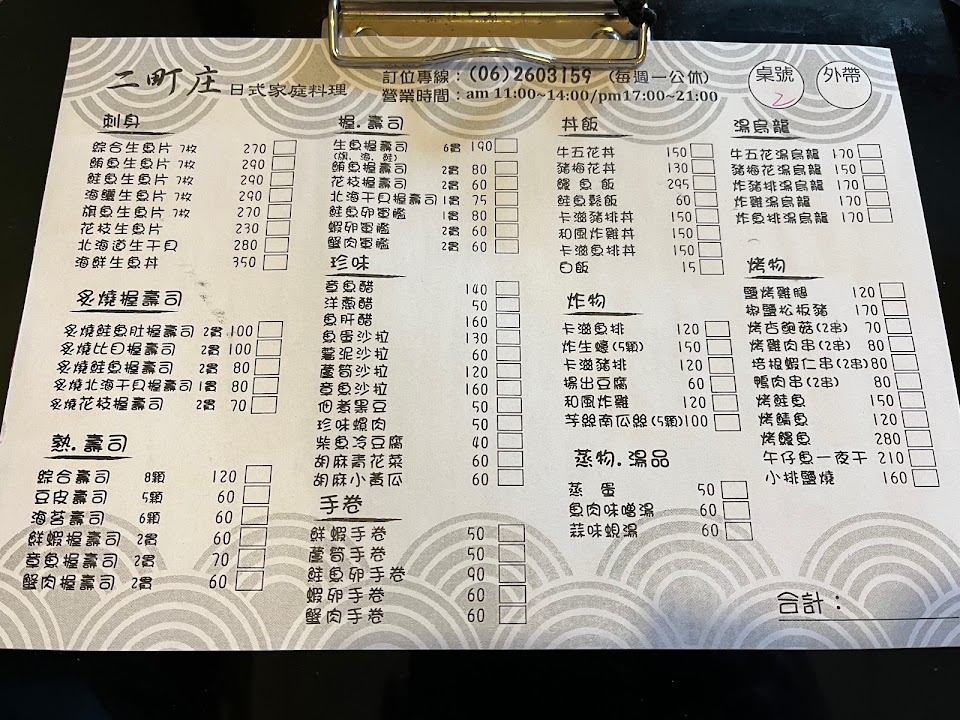 二町庄 日式家庭料理
訂位專線：(06)2603159 (每週一公休)
營業時間：am 11:00~14:00/pm17:00~21:00
桌號
2
外帶
刺身
綜合生魚片 7枚 270
鮪魚生魚片 7枚 290
鮭魚生魚片 7枚 290
海鱺生魚片 7枚 290
旗魚生魚片 7枚 270
花枝生魚片 230
北海道生干貝 280
海鮮生魚丼 350
炙燒握壽司
炙燒鮭魚肚握壽司 2貫 100
炙燒比目握壽司 2貫 100
炙燒鮭魚握壽司 2貫 80
炙燒北海干貝握壽司 1貫 80
炙燒花枝握壽司 2貫 70
熟.壽司
綜合壽司 8顆 120
豆皮壽司 5顆 60
海苔壽司 6顆 60
鮮蝦握壽司 2貫 60
章魚握壽司 2貫 70
蟹肉握壽司 2貫 60
握.壽司
生魚握壽司 6貫 190
(旗、海、鮭)
鮪魚握壽司 2貫 80
花枝握壽司 2貫 60
北海干貝握壽司 1貫 75
鮭魚卵軍艦 1貫 80
蝦卵軍艦 2貫 60
蟹肉軍艦 2貫 60
珍味
章魚醋 140
洋蔥醋 50
魚肝醋 160
魚蛋沙拉 130
薯泥沙拉 60
蘆筍沙拉 120
章魚沙拉 160
佃煮黑豆 50
珍味螺肉 50
柴魚冷豆腐 40
胡麻青花菜 60
胡麻小黃瓜 60
手卷
鮮蝦手卷 50
蘆筍手卷 50
鮭魚卵手卷 90
蝦卵手卷 60
蟹肉手卷 60
丼飯
牛五花丼 150
豬梅花丼 130
鰻魚飯 295
鮭魚鬆飯 60
卡滋豬排丼 150
和風炸雞丼 150
卡滋魚排丼 150
白飯 15
炸物
卡滋魚排 120
炸生蠔(5顆) 150
卡滋豬排 120
揚出豆腐 60
和風炸雞 120
芋絲南瓜絲(5顆) 100
蒸物.湯品
蒸 蛋 50
魚肉味噌湯 60
蒜味蜆湯 60
湯烏龍
牛五花湯烏龍 170
豬梅花湯烏龍 150
炸豬排湯烏龍 170
炸雞湯烏龍 170
炸魚排湯烏龍 170
烤物
鹽烤雞腿 120
椒鹽松板豬 170
烤杏鮑菇(2串) 70
烤雞肉串(2串) 80
培根蝦仁串(2串) 80
鴨肉串(2串) 80
烤鮭魚 150
烤鯖魚 120
烤鰻魚 280
午仔魚一夜干 210
小排鹽燒 160
合計：